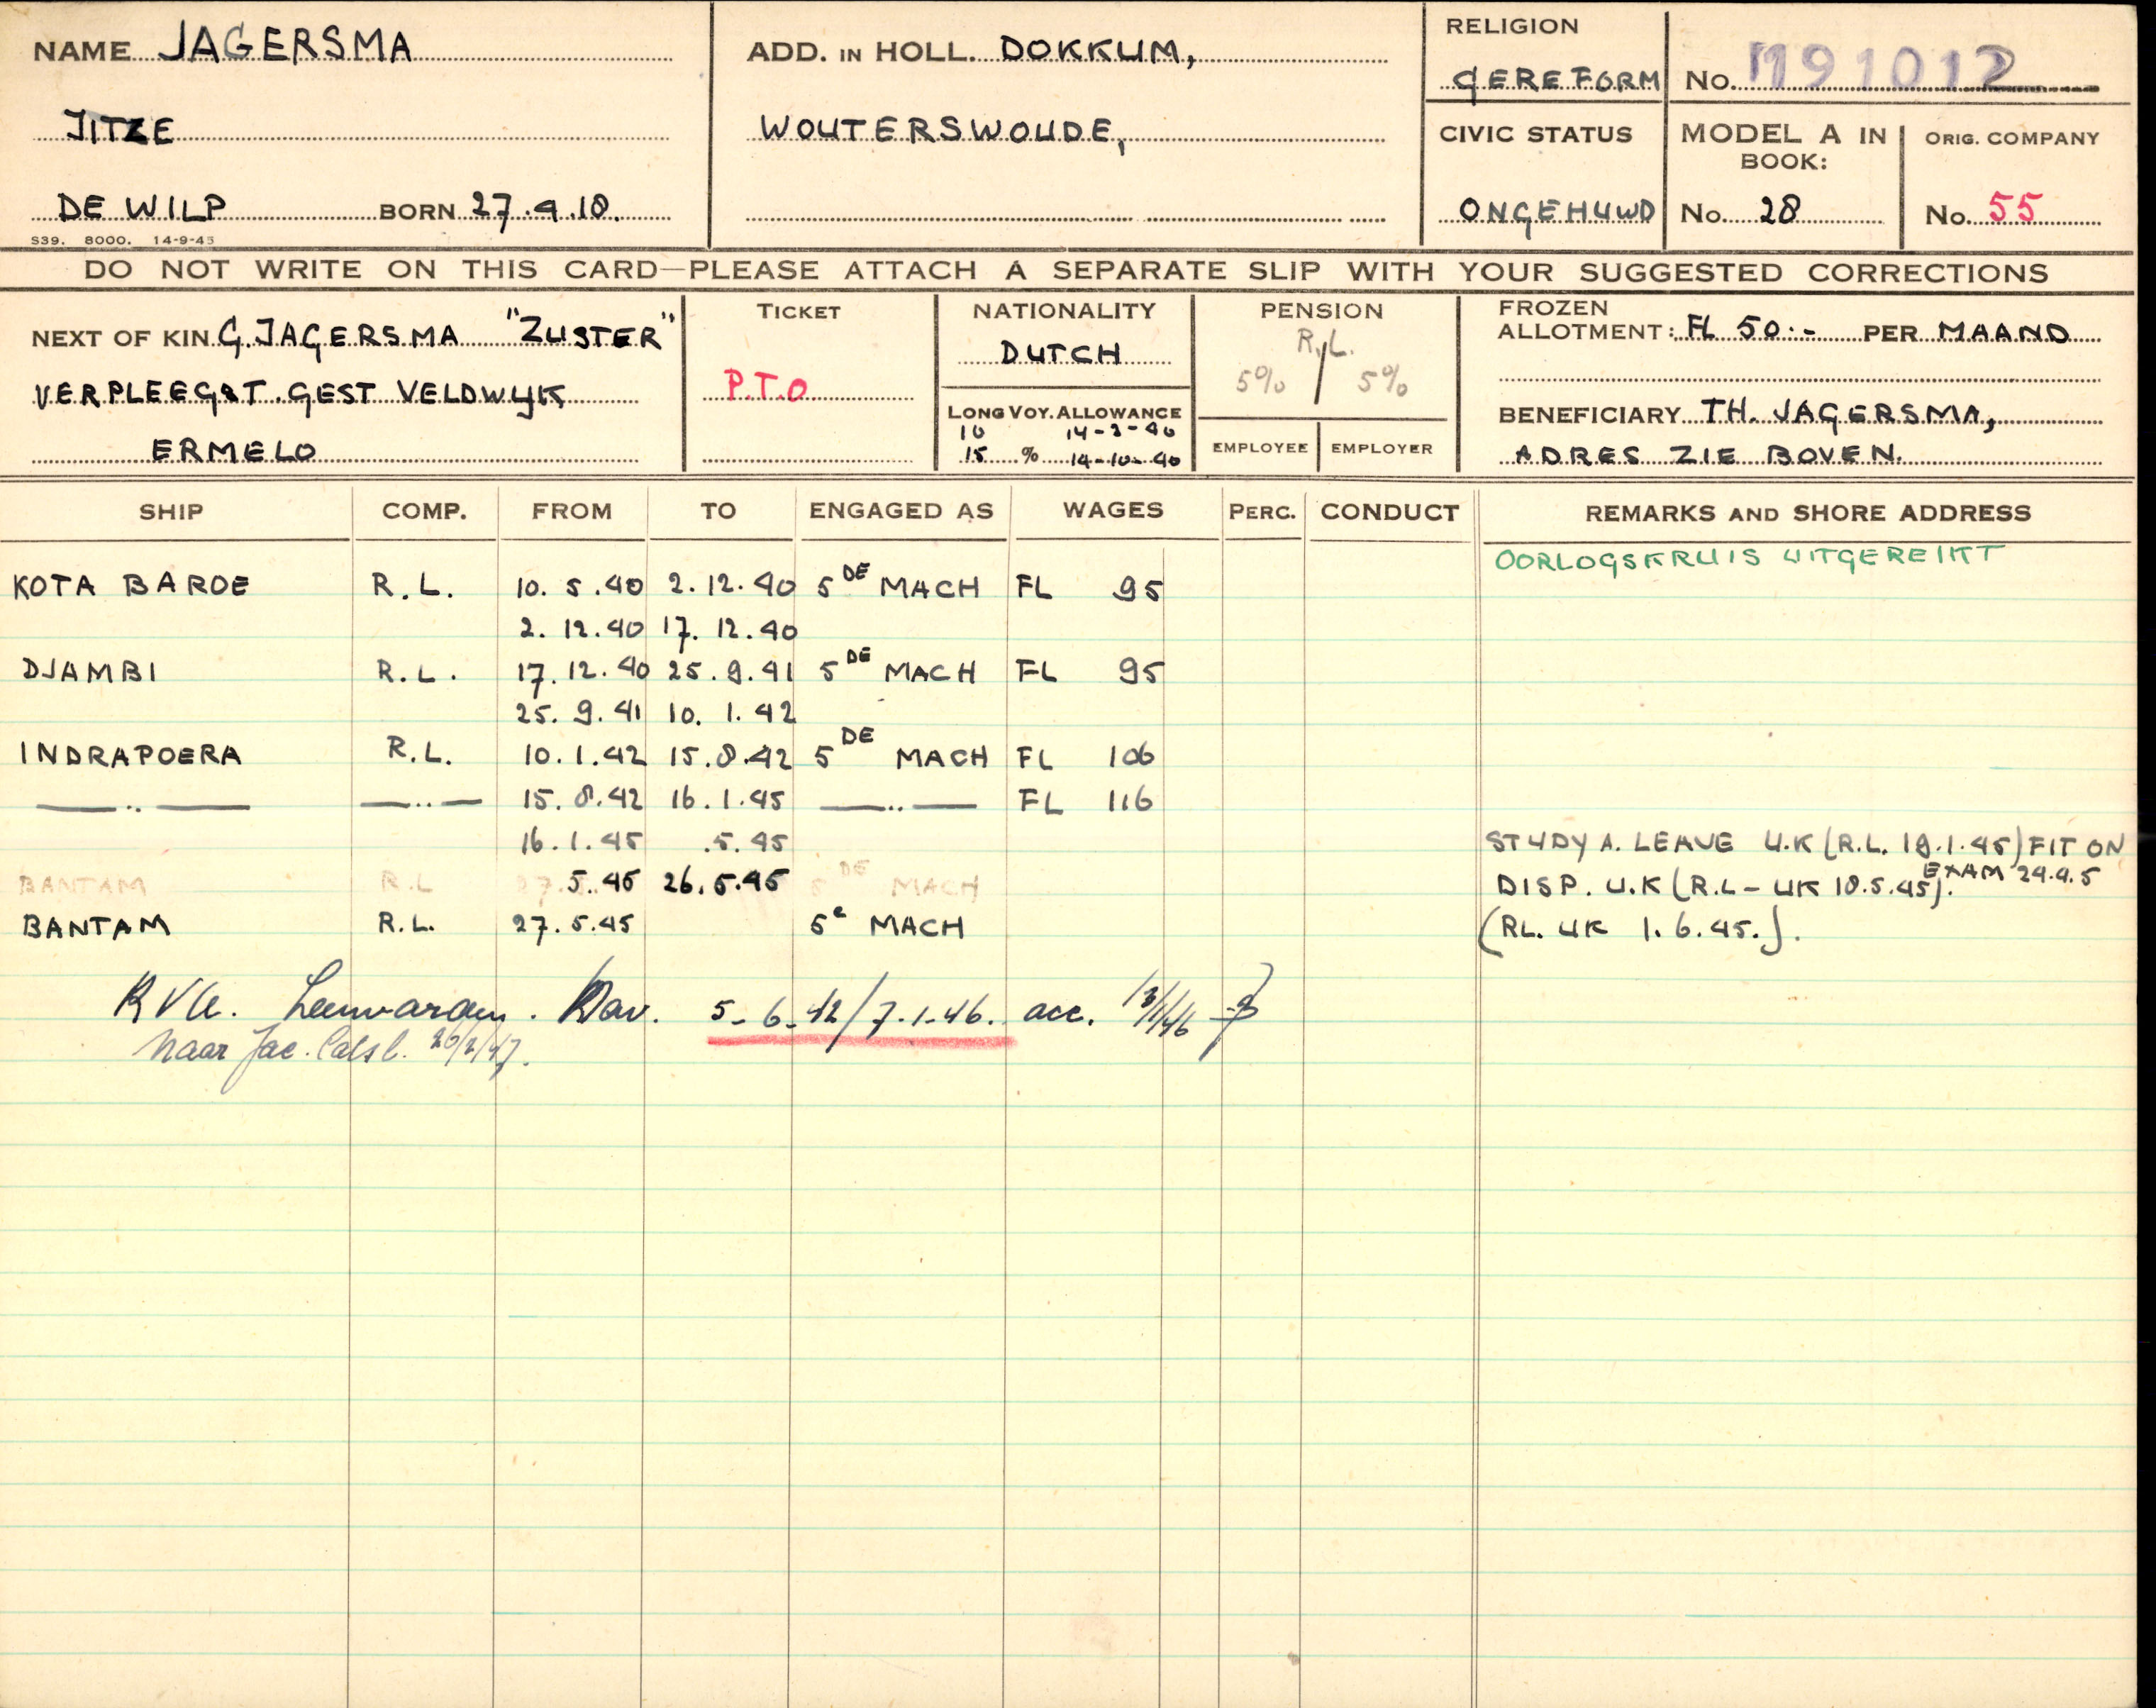 NAME JAGERSMA
JITZE
DE WILP BORN 27.4.18.
S39. 8000. 14-9-43
ADD. IN HOLL. DOKKUM,
WOUTERSWOUDE,
RELIGION
GEREFORM
No. M91012
CIVIC STATUS
ONGEHUWD
MODEL A IN
BOOK:
No. 28
ORIG. COMPANY
No. 55
DO NOT WRITE ON THIS CARD—PLEASE ATTACH A SEPARATE SLIP WITH YOUR SUGGESTED CORRECTIONS
NEXT OF KIN G. JAGERSMA "ZUSTER"
VERPLEEGST. GEST VELDWIJK
ERMELO
TICKET
P.T.O
NATIONALITY
DUTCH
LONG VOY. ALLOWANCE
10 14-3-40
15 % 14-10-40
PENSION
R.L.
5% / 5%
EMPLOYEE EMPLOYER
FROZEN
ALLOTMENT: FL 50:- PER MAAND
BENEFICIARY TH. JAGERSMA,
ADRES ZIE BOVEN.
SHIP COMP. FROM TO ENGAGED AS WAGES PERC. CONDUCT REMARKS AND SHORE ADDRESS
OORLOGSKRUIS UITGEREIKT
KOTA BAROE R.L. 10.5.40 2.12.40 5DE MACH FL 95
2.12.40 17.12.40
DJAMBI R.L. 17.12.40 25.9.41 5DE MACH FL 95
25.9.41 10.1.42
INDRAPOERA R.L. 10.1.42 15.8.42 5DE MACH FL 106
—..— —..— 15.8.42 16.1.45 —..— FL 116
16.1.45 .5.45 STUDY A. LEAVE U.K (R.L. 19.1.45) FIT ON
BANTAM R.L 27.5.45 26.5.45 5DE MACH DISP. U.K (R.L-UK 18.5.45). EXAM 24.4.5
BANTAM R.L. 27.5.45 5e MACH (RL. UK 1.6.45.).
RVA. Leeuwarden. 5-6-42/7-1-46. acc.
naar Jac. 26/2/47.